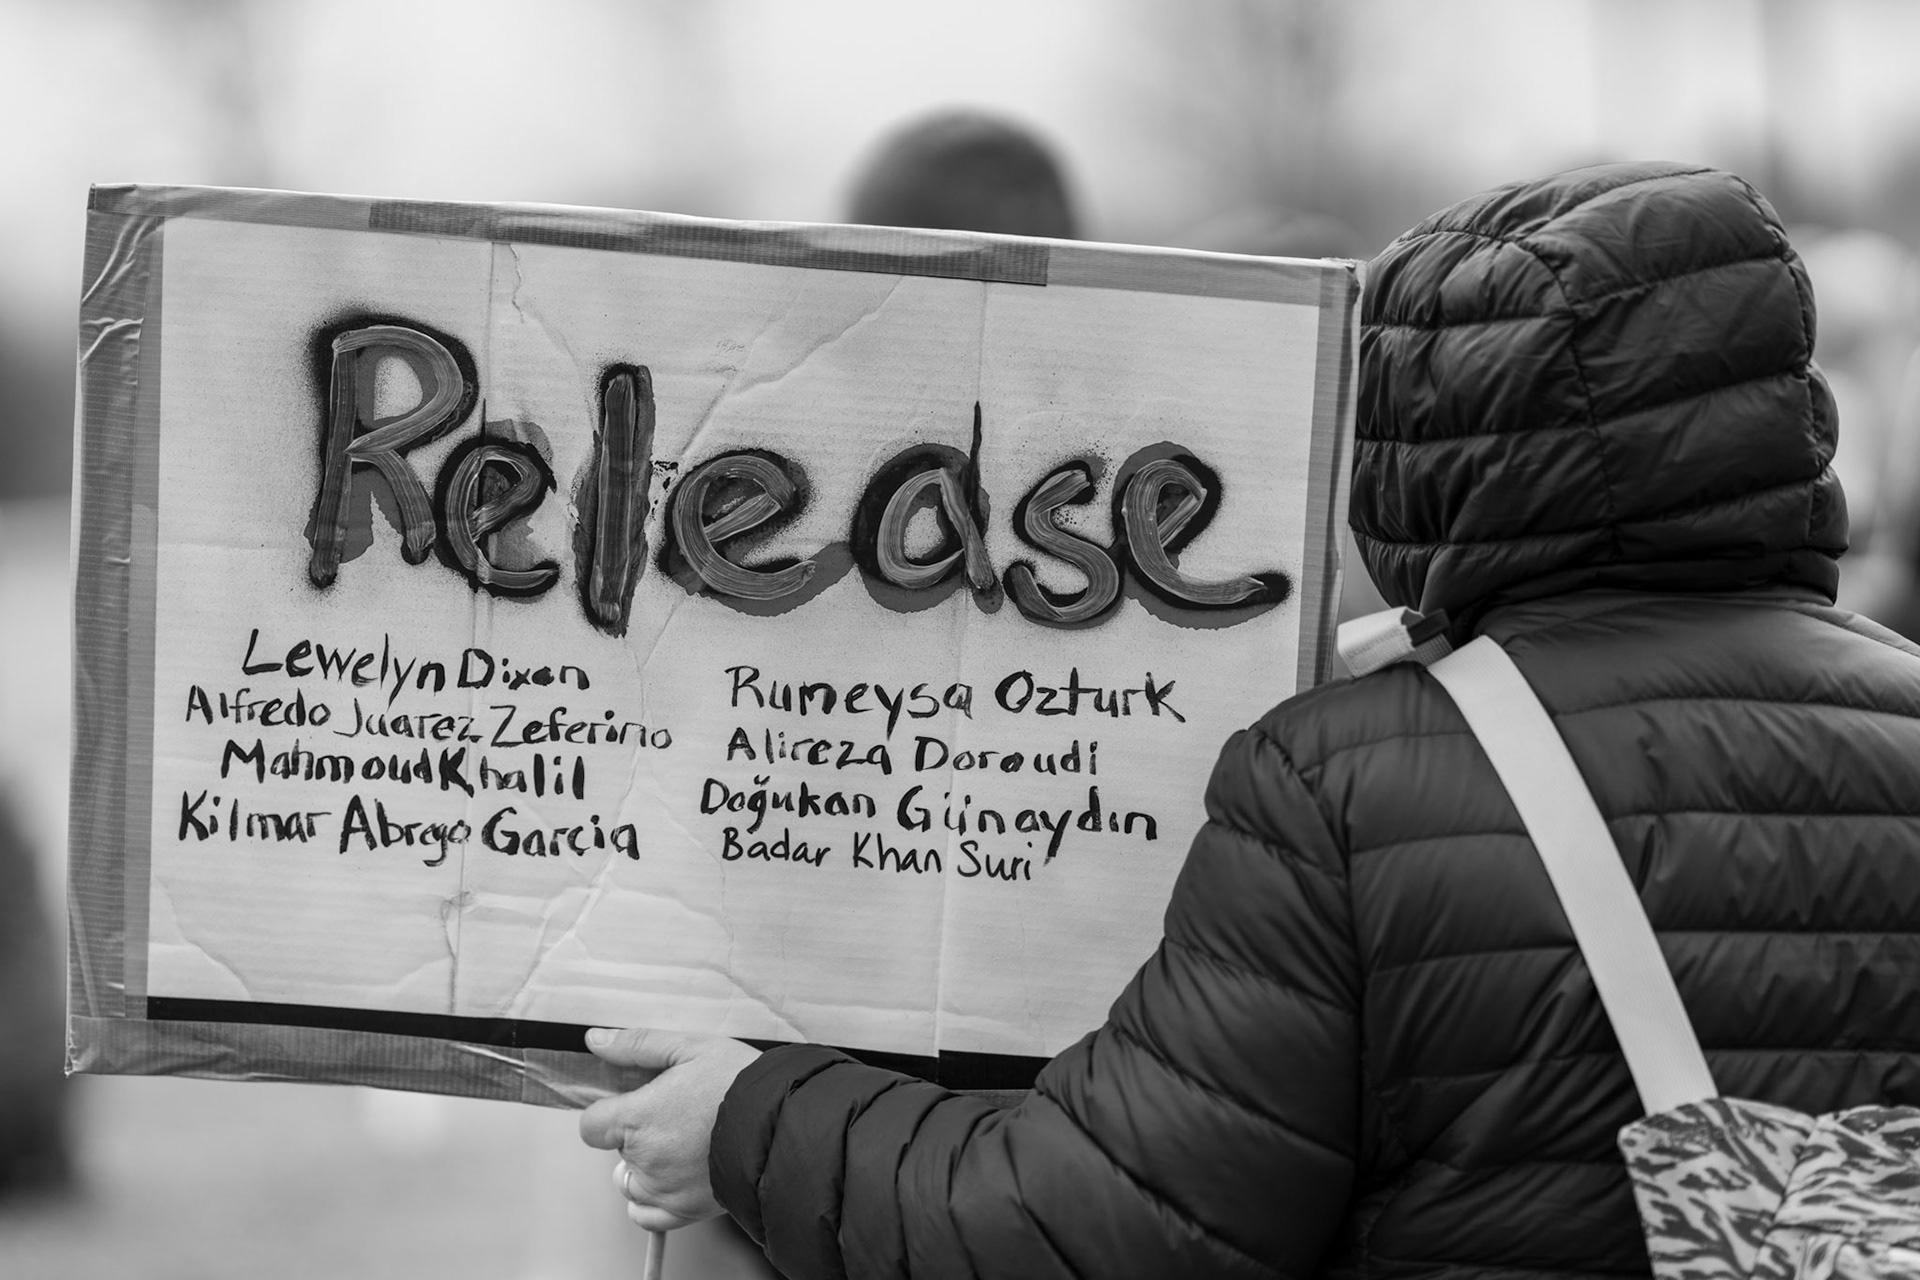 Release
Lewelyn Dixon
Alfredo Juarez Zeferino
Mahmoud Khalil
Kilmar Abrego Garcia
Rumeysa Ozturk
Alireza Doroudi
Doğukan Günaydın
Badar Khan Suri